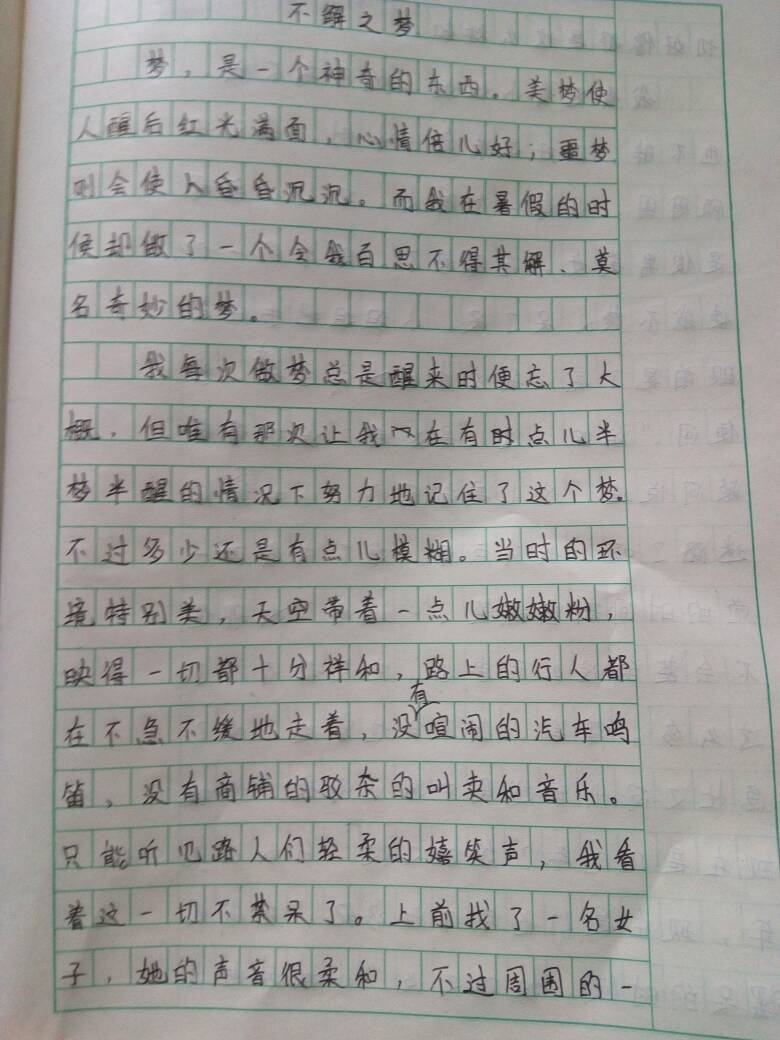 不解之梦
梦，是一个神奇的东西。美梦使
人醒后红光满面，心情倍儿好；噩梦
则会使人昏昏沉沉。而我在暑假的时
候却做了一个令我百思不得其解、莫
名奇妙的梦。
我每次做梦总是醒来时便忘了大
概，但唯有那次让我在有时点儿半
梦半醒的情况下努力地记住了这个梦。
不过多少还是有点儿模糊。当时的环
境特别美，天空带着一点儿嫩嫩粉，
映得一切都十分祥和，路上的行人都
在不急不缓地走着，没有喧闹的汽车鸣
笛，没有商铺的驳杂的叫卖和音乐。
只能听见路人们轻柔的嬉笑声，我看
着这一切不禁呆了。上前找了一名女
子，她的声音很柔和，不过周围的一